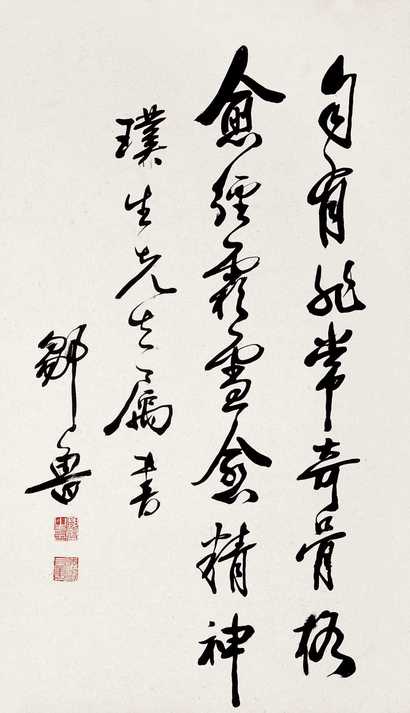 自有非常奇骨格
愈經霜雪愈精神
璞生先生屬書
鄒魯